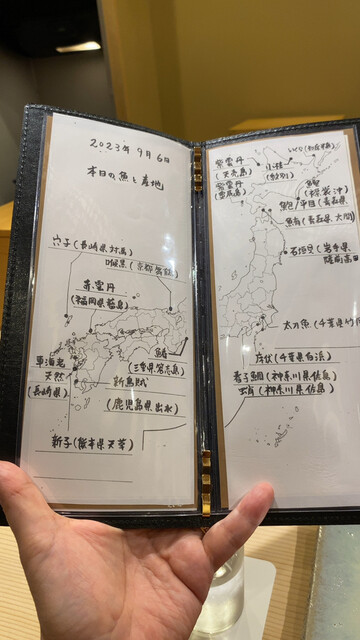 2023年9月6日
本日の魚と産地
穴子(長崎県対馬)
(京都舞鶴)
赤雲丹
(福岡県藍島)
車海老
天然
(長崎県)
(三重県答志島)
新烏賊
(鹿児島県出水)
新子(熊本県天草)
紫雲丹
(天売島)
紫雲丹
小柱
いくら(知床半島)
鮑 平目(青森県)
(青森県 大間)
石垣貝(岩手県
陸前高田
太刀魚(千葉県竹岡
(千葉県白浜)
春子鯛(神奈川県佐島)
(神奈川県佐島)